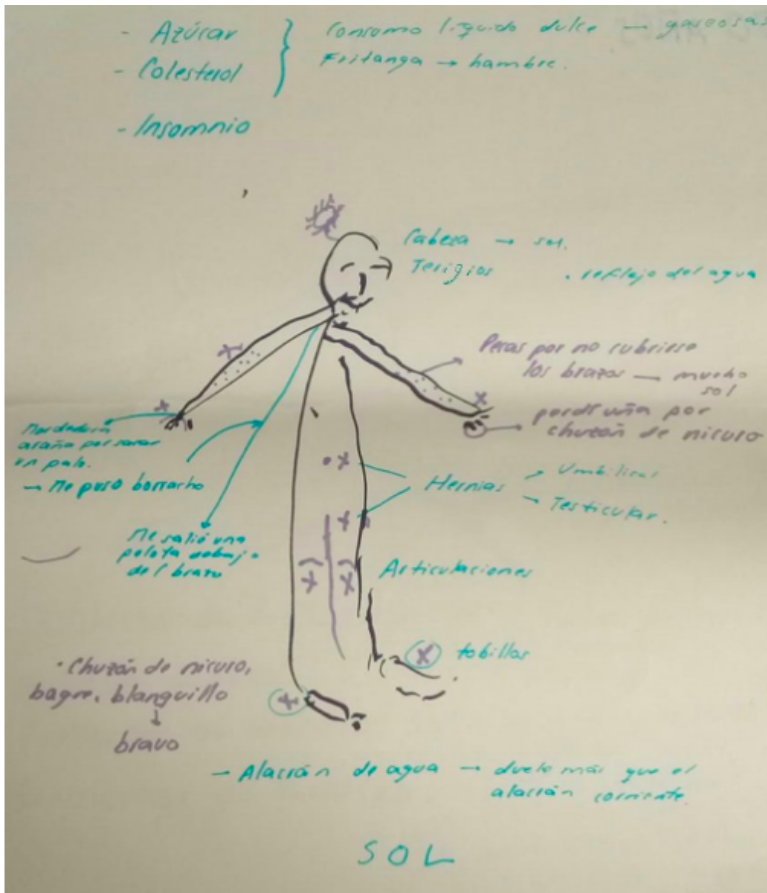 - Azúcar
- Colesterol
Consumo líquido dulce → gaseosas
Fritanga → hambre.
- Insomnio
Cabeza → sol.
Terigios . reflejo del agua
Pecas por no cubrirse
los brazos — mucho
sol
perdí uña por
chuzón de nicuro
Mordedura
araña por sacar
un palo.
→ Me puso borracho
Hernias
Umbilical
Testicular.
Me salió una
pelota debajo
del brazo
Articulaciones
tobillos
• Chuzón de nicuro,
bagre, blanquillo
bravo
→ Alacrán de agua → duele más que el
alacrán corriente.
SOL